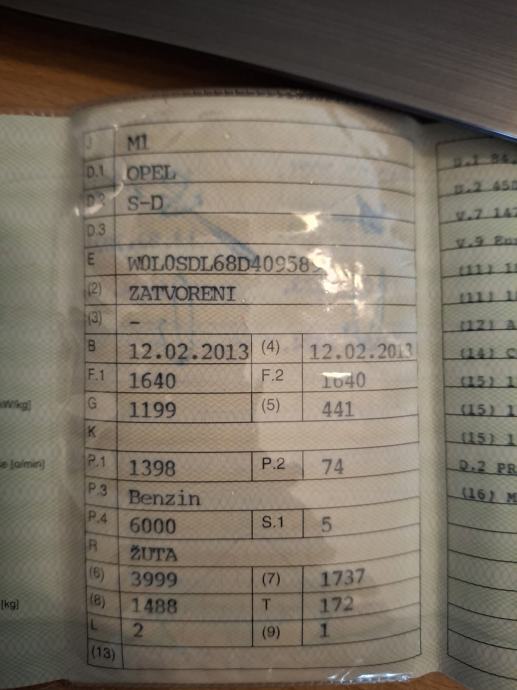 J M1
D.1 OPEL
D.2 S-D
D.3
E
(2) ZATVORENI
(3) –
B 12.02.2013 (4) 12.02.2013
F.1 1640 F.2 1640
G 1199 (5) 441
K
P.1 1398 P.2 74
P.3 Benzin
P.4 6000 S.1 5
R ŽUTA
(6) 3999 (7) 1737
(8) 1488 T 172
L 2 (9) 1
(13)
[kg]
V.7 147
(11)
(11)
(12) A
(14) C
(15) 1
(15) 1
(15) 1
D.2 PR
(16) M